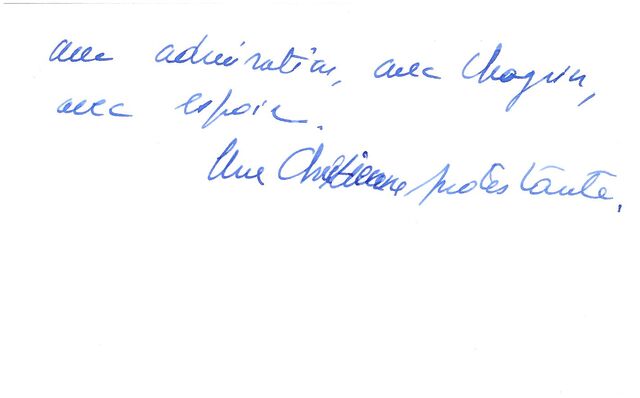 avec admiration, avec chagrin,
avec espoir.
Une Chrétienne protestante.